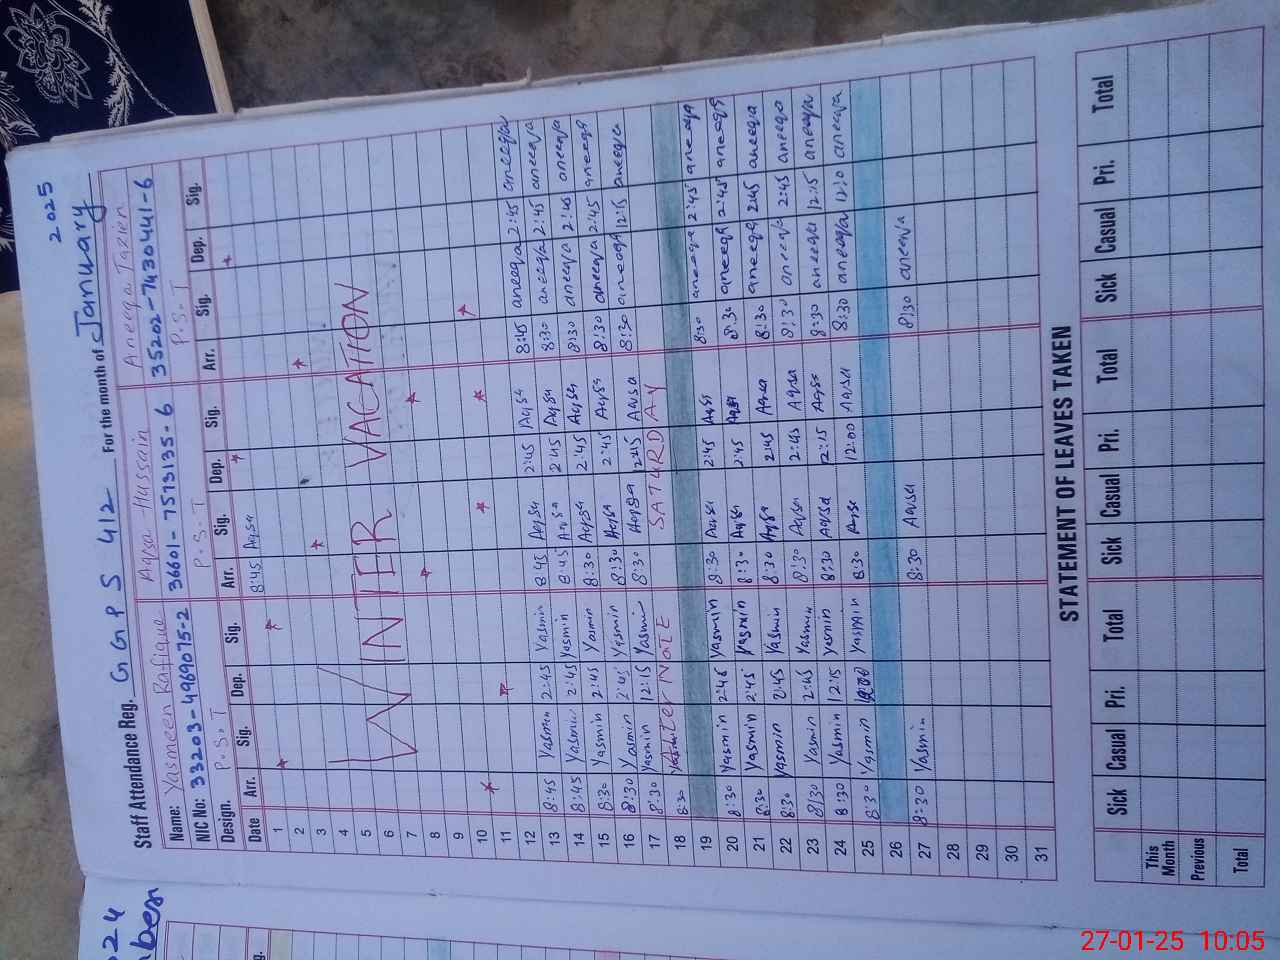 2025
Staff Attendance Reg. G G P S 412 For the month of January
Name: Yasmeen Rafique Aqsa Hussain Aneeqa Tazien
NIC No: 33203-4969075-2 36601-7573135-6 35202-7430441-6
Design. P.S.T P.S.T P.S.T
Date Arr. Sig. Dep. Sig. Arr. Sig. Dep. Sig. Arr. Sig. Dep. Sig.
1 8:45 Aqsa
2
3
4
5 WINTER VACATION
6
7
8
9
10
11
12
13 8:45 Yasmin 2:45 Yasmin 8:45 Aqsa 2:45 Aqsa 8:45 aneeqa 2:45 aneeqa
14 8:45 Yasmin 2:45 Yasmin 8:45 Aqsa 2:45 Aqsa 8:30 aneeqa 2:45 aneeqa
15 8:30 Yasmin 2:45 Yasmin 8:30 Aqsa 2:45 Aqsa 8:30 aneeqa 2:45 aneeqa
16 8:30 Yasmin 2:45 Yasmin 8:30 Aqsa 2:45 Aqsa 8:30 aneeqa 2:45 aneeqa
17 8:30 Yasmin 12:15 Yasmin 8:30 Aqsa 12:15 Aqsa 8:30 aneeqa 12:15 aneeqa
18 8:30 SATURDAY
19
20 8:30 Yasmin 2:45 Yasmin 8:30 Aqsa 2:45 Aqsa 8:30 aneeqa 2:45 aneeqa
21 8:30 Yasmin 2:45 Yasmin 8:30 Aqsa 2:45 Aqsa 8:30 aneeqa 2:45 aneeqa
22 8:30 Yasmin 2:45 Yasmin 8:30 Aqsa 2:45 Aqsa 8:30 aneeqa 2:45 aneeqa
23 8:30 Yasmin 2:45 Yasmin 8:30 Aqsa 2:45 Aqsa 8:30 aneeqa 2:45 aneeqa
24 8:30 Yasmin 12:15 Yasmin 8:30 Aqsa 12:15 Aqsa 8:30 aneeqa 12:15 aneeqa
25 8:30 Yasmin Yasmin 8:30 Aqsa 12:00 Aqsa 8:30 aneeqa aneeqa
26
27 8:30 Yasmin 8:30 Aqsa 8:30 aneeqa
28
29
30
31
STATEMENT OF LEAVES TAKEN
Sick Casual Pri. Total Sick Casual Pri. Total Sick Casual Pri. Total
This Month
Previous
Total
27-01-25 10:05